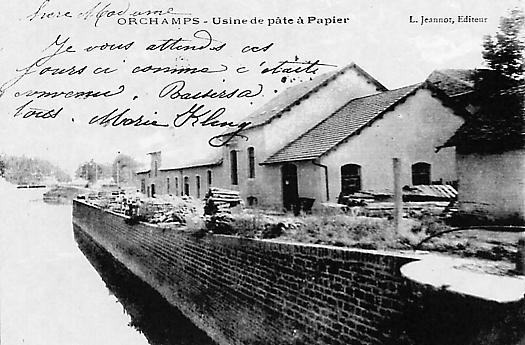 Chère Madame
ORCHAMPS - Usine de pâte à Papier
L. Jeannot, Editeur
Je vous attends ces
jours ci comme c'était
convenu. Baisers à
tous. Marie Kling